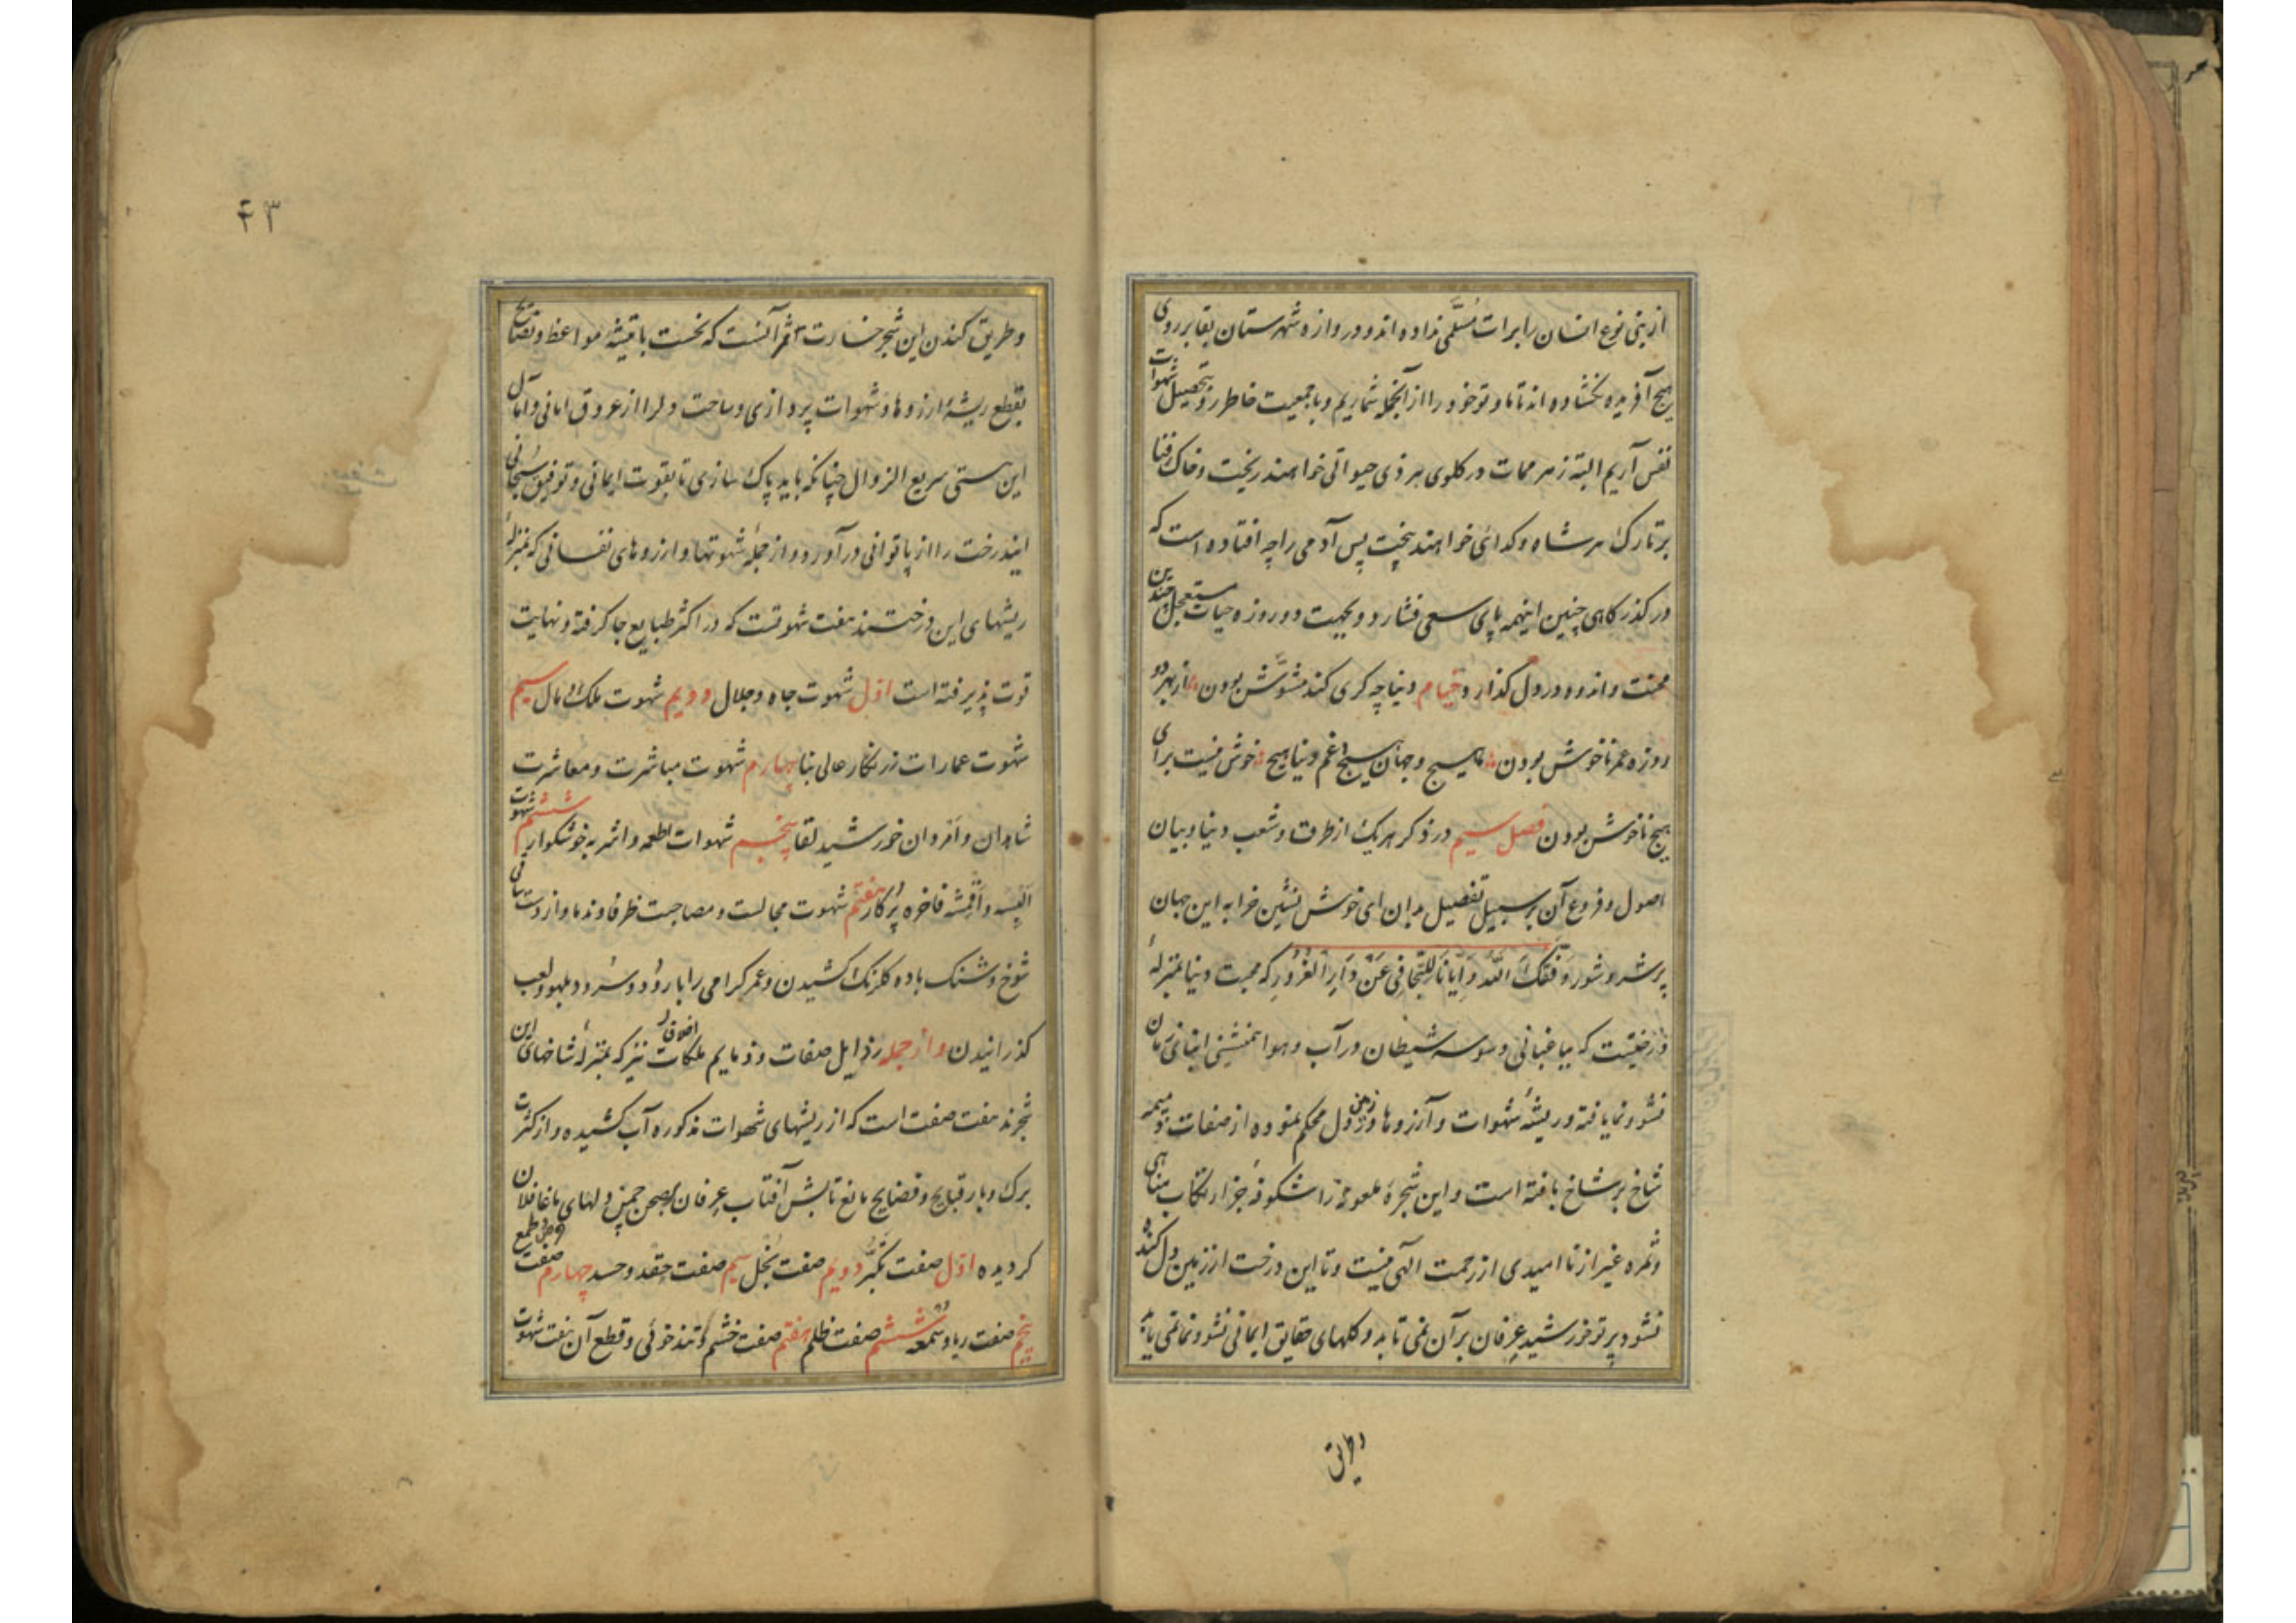 از بنی نوع انسان را برات مسلّمی نداده اند و دروازه شهرستان بقا بر روی
هیچ آفریده نکشاده اند تا ما و تو خود را از آنجمله شماریم و با جمعیت خاطر رو بتحصیل شهوات
نفس آریم البته زهر ممات در کلوی هر ذی حیواتی خواهند ریخت و خاک فنا
بر تارک هر شاه و کدائی خواهند بیخت پس آدمی را چه افتاده است که
در کذرکاهی چنین اینهمه پای سعی فشارد و بجهت دو روزه حیات مستعجل چندین
محنت و اندوه در دل کذارد خیام دنیا چه کری کند مشوّش بودن از بهر دو
روزه عمر ناخوش بودن ما هیچ و جهان هیچ و غم دنیا هیچ خوش نیست برای
هیچ ناخوش بودن فصل سیم در ذکر هریک از طرق و شعب دنیا و بیان
اصول و فروع آن بر سبیل تفصیل بدان ای خوش نشین خرابه این جهان
پر شر و شور وَفَّقَکَ اللّهُ وَاِیّانَا لِلتَّجافی عَنْ دَارِ الْغُرُورِ که محبت دنیا بمنزلهٔ
درختیست که بباغبانی وسوسه شیطان در آب و هوا همنشینی ابنای زمان
نشو و نما یافته و ریشهٔ شهوات و آرزوها در زمین دل محکم نموده از صفات ذمیمه
شاخ بر شاخ بافته است و این شجرهٔ ملعونه را شکوفهٔ جز ارتکاب مناهی
و ثمره غیر از ناامیدی از رحمت الهی نیست و تا این درخت از زمین دل کنده
نشود پرتو خورشید عرفان بر آن نمی تابد و کلهای حقایق ایمانی نشو و نما نمی یابد
وطریق
۴۳
و طریق کندن این شجر خسارت ثمر آنست که نخست با تیشهٔ مواعظ و نصایح
بقطع ریشهٔ آرزوها و شهوات پردازی و ساحت دلرا از عروق امانی و آمال
این هستی سریع الزوال چنانکه باید پاک سازی تا بقوت ایمانی و توفیق سبحانی
ایندرخت را از پا توانی در آورد و از جمله شهوتها و ارزوهای نفسانی که بمنزلهٔ
ریشهای این درختند هفت شهوتست که در اکثر طبایع جا کرفته و نهایت
قوت پذیرفته است اوّل شهوت جاه و جلال دویم شهوت ملک و مال سیم
شهوت عمارات زرنکار عالی بنا چهارم شهوت مباشرت و معاشرت
شاهدان و امردان خورشید لقا پنجم شهوات اطعمه و اشربه خوشکوار ششم شهوت
البسه و اقمشه فاخره پُر کار هفتم شهوت مجالست و مصاحبت ظرفا و ندما و از دست ساقی
شوخ و شنک باده کلرنک کشیدن و عمر کرامی را با رود و سرود و بلهو و لعب
کذرانیدن و از جمله رذایل صفات و ذمایم ملکات اخلاق نیز که بمنزلهٔ شاخهای این
شجرند هفت صفت است که از ریشهای شهوات مذکوره آب کشیده و از کثرت
برک و بار قبایح و فضایح مانع تابش آفتاب عرفان بر صحن چمن دلهای ما غافلان
کردیده اوّل صفت تکبّر دویم صفت بُخل سیم صفت حِقد و حسد چهارم صفت حرص و طمع
پنجم صفت ریا و سُمعه ششم صفت ظلم هفتم صفت خشم و تندخوئی و قطع آن هفت شهوت